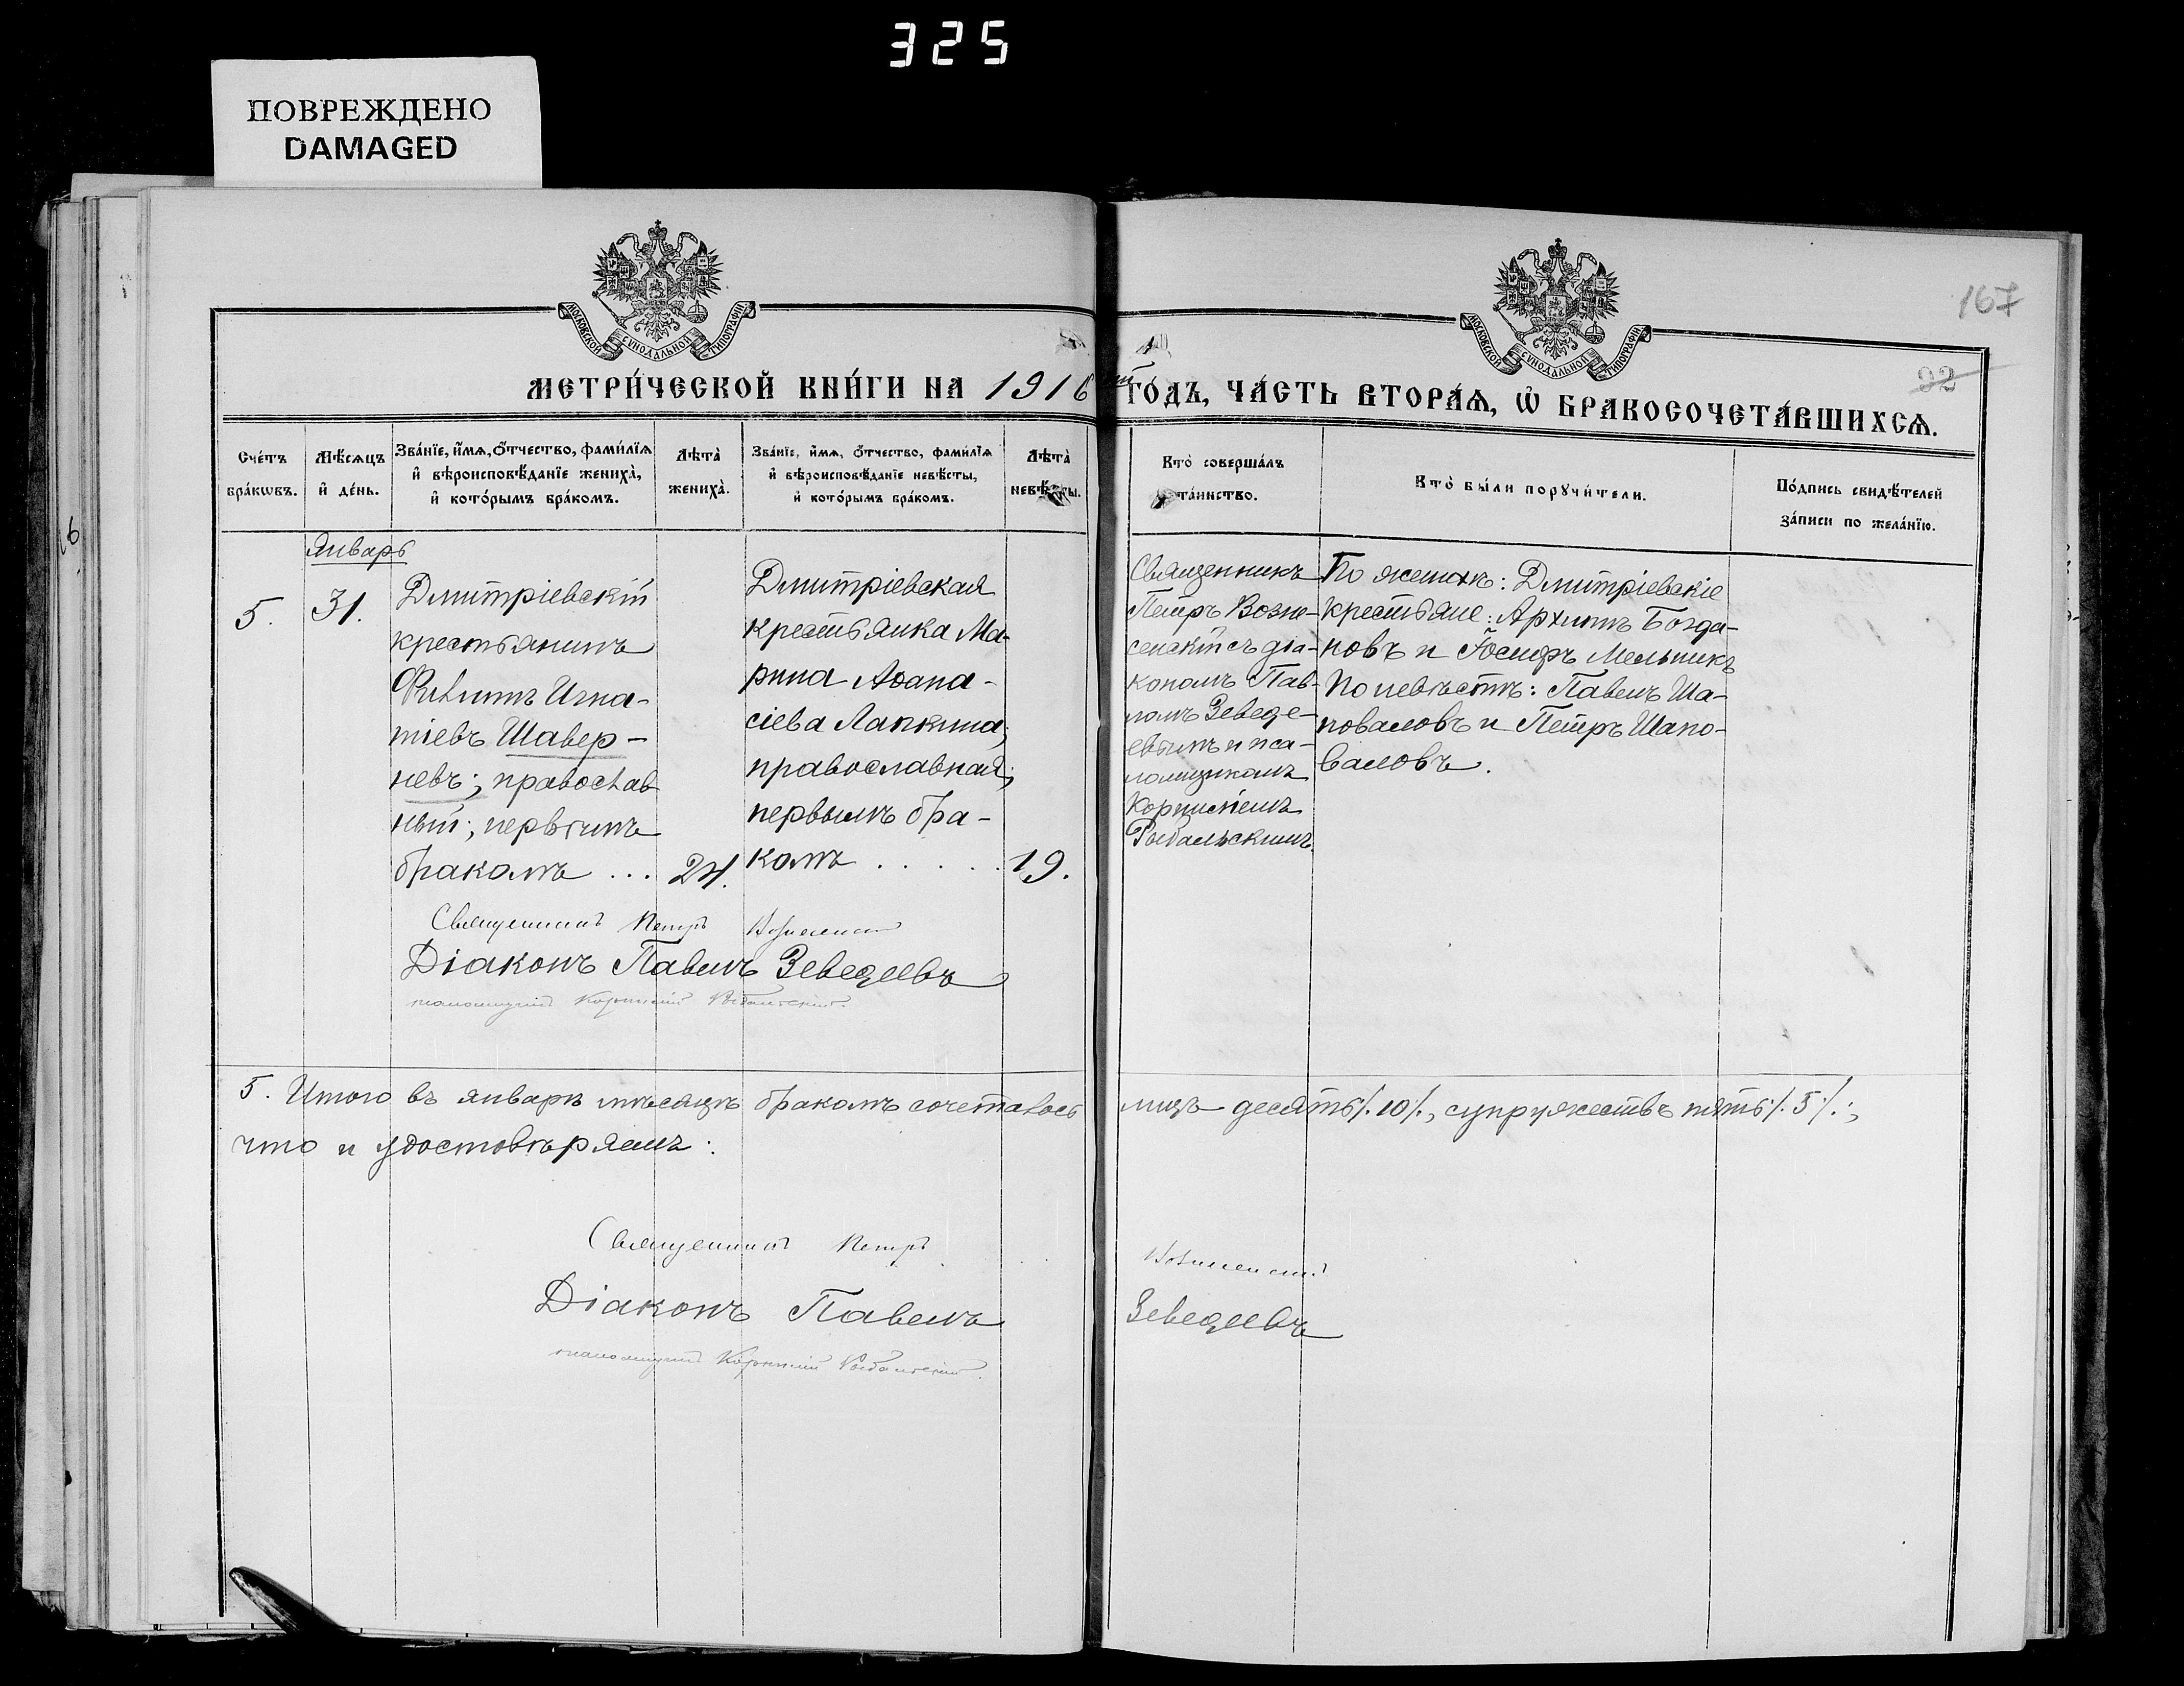 325
ПОВРЕЖДЕНО
DAMAGED
МОСКОВСКОЙ СѴНОДАЛЬНОЙ ТИПОГРАФІИ
МОСКОВСКОЙ СѴНОДАЛЬНОЙ ТИПОГРАФІИ
167
92
МЕТРИ́ЧЕСКОЙ КНИ́ГИ НА 1916 ГО́ДЪ, ЧА́СТЬ ВТОРА́Ѧ, Ѡ҆ БРАКОСОЧЕТА́ВШИХСѦ.
Сче́тъ бра́кѡвъ.
Мѣ́сѧцъ и҆ де́нь.
Зва́нїе, и҆́мѧ, о҆́тчество, фами́лїѧ и҆ вѣроисповѣ́данїе жениха̀, и҆ кото́рымъ бра́комъ.
Лѣта̀ жениха̀.
Зва́нїе, и҆́мѧ, о҆́тчество, фами́лїѧ и҆ вѣроисповѣ́данїе невѣ́сты, и҆ кото́рымъ бра́комъ.
Лѣта̀ невѣ́сты.
Кто̀ соверша́лъ та́инство.
Кто̀ бы́ли порꙋчи́тели.
По́дпись свидѣ́телей за́писи по жела́нїю.
Январь
5.
31.
Дмитріевскій
крестьянинъ
Филиппъ Игна-
тіевъ Шавер-
невъ; православ
ный; первымъ
бракомъ ...
24.
Дмитріевская
крестьянка Ма-
рина Аѳана-
сіева Лапкина;
православная;
первымъ бра-
комъ . . . . .
19.
Священникъ
Петръ Возне-
сенскій съ діа-
кономъ Пав-
ломъ Зеведе-
евымъ и пса-
ломщикомъ
Корниліемъ
Рыбальскимъ.
По женихѣ: Дмитріевскіе
крестьяне: Архипъ Богда-
новъ и Іосифъ Мельникъ
По невѣстѣ: Павелъ Ша-
поваловъ и Петръ Шапо-
валовъ.
Священникъ Петръ Вознесенскій
Діаконъ Павелъ Зеведеевъ
псаломщикъ Корнилій Рыбальскій.
5. Итого въ январѣ мѣсяцѣ бракомъ сочеталось лицъ десять /.10/., супружествъ пять /.5/.;
что и удостовѣряемъ:
Священникъ Петръ Вознесенскій
Діаконъ Павелъ Зеведеевъ
псаломщикъ Корнилій Рыбальскій.